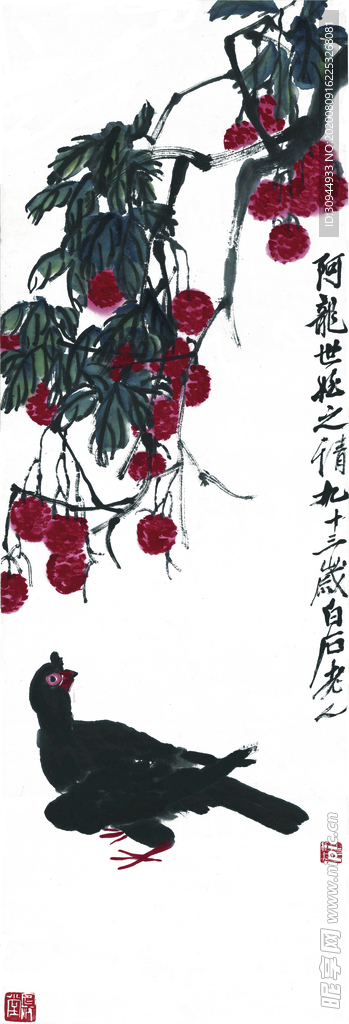 阿龍世姪之清九十三歲白石老人
ID:30944933 NO:20200809162253263081
昵享网 www.nipic.cn